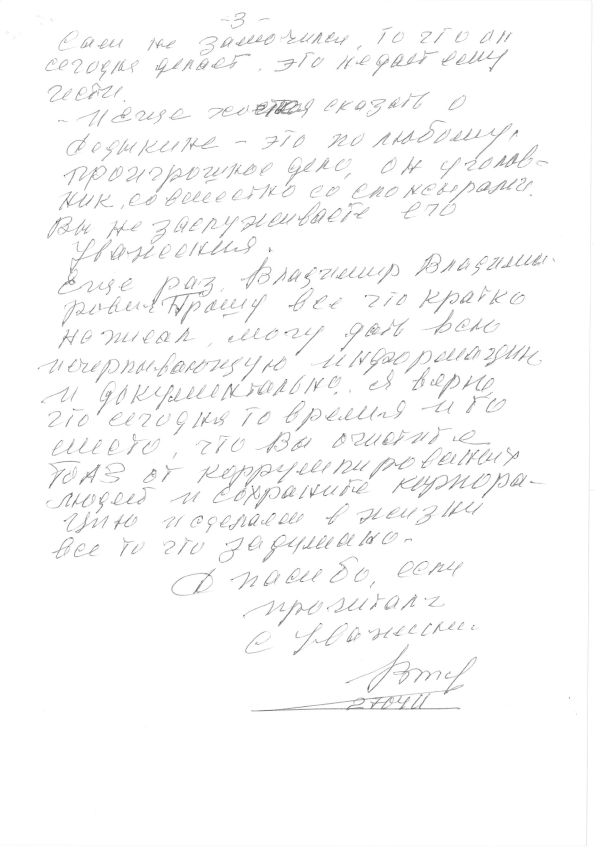 - 3 -
Сам не замочился, то что он
сегодня делает. это не дает ему
чести.
- И еще хо сказать о
Федыкине - это по любому,
проигрошное дело, он уголов-
ник, совместно со спонсорами.
Вы не заслуживаете его
уважения.
Еще раз, Владимир Владими-
рович Прошу все что кратко
написал, могу дать всю
исчерпывающую информацию
и документально. Я верю,
что сегодня то время и то
место, что Вы очистите
ТОАЗ от коррумпированых
людей и сохраните корпора-
цию и сделаем в жизни
все то что задумано.
Спасибо, если
прочитали
С Уважением.
270411